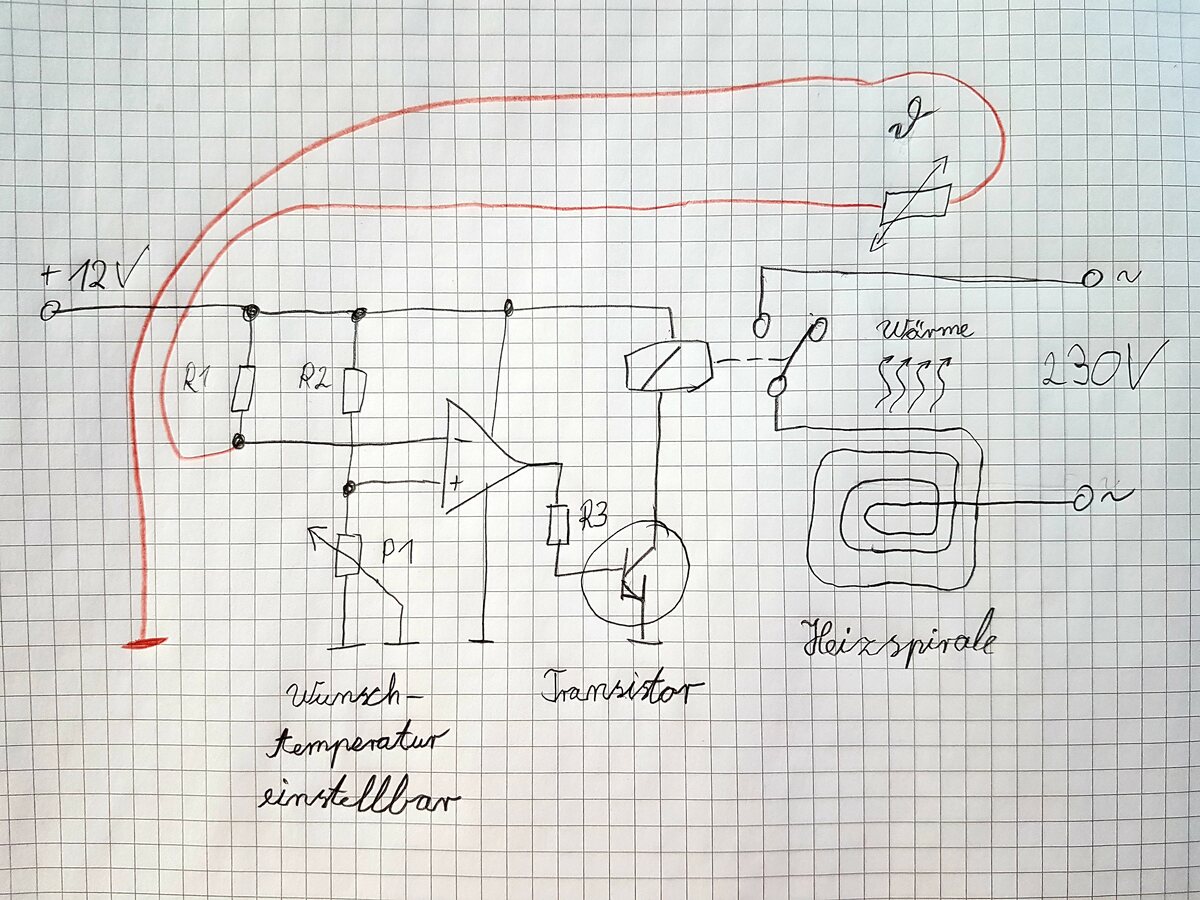 ϑ
+12V
~
R1
R2
Wärme
230V
-
+
R3
P1
~
Heizspirale
Wunsch-
temperatur
einstellbar
Transistor